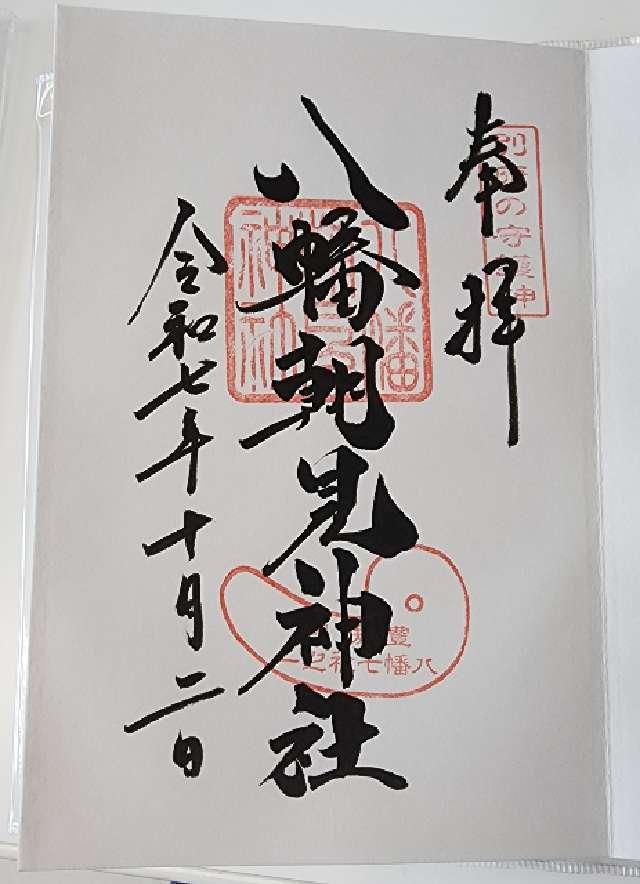 奉拝
別府の守護神
八幡朝見神社
八幡朝見神社
豊
八幡七社之一
令和七年十月二日